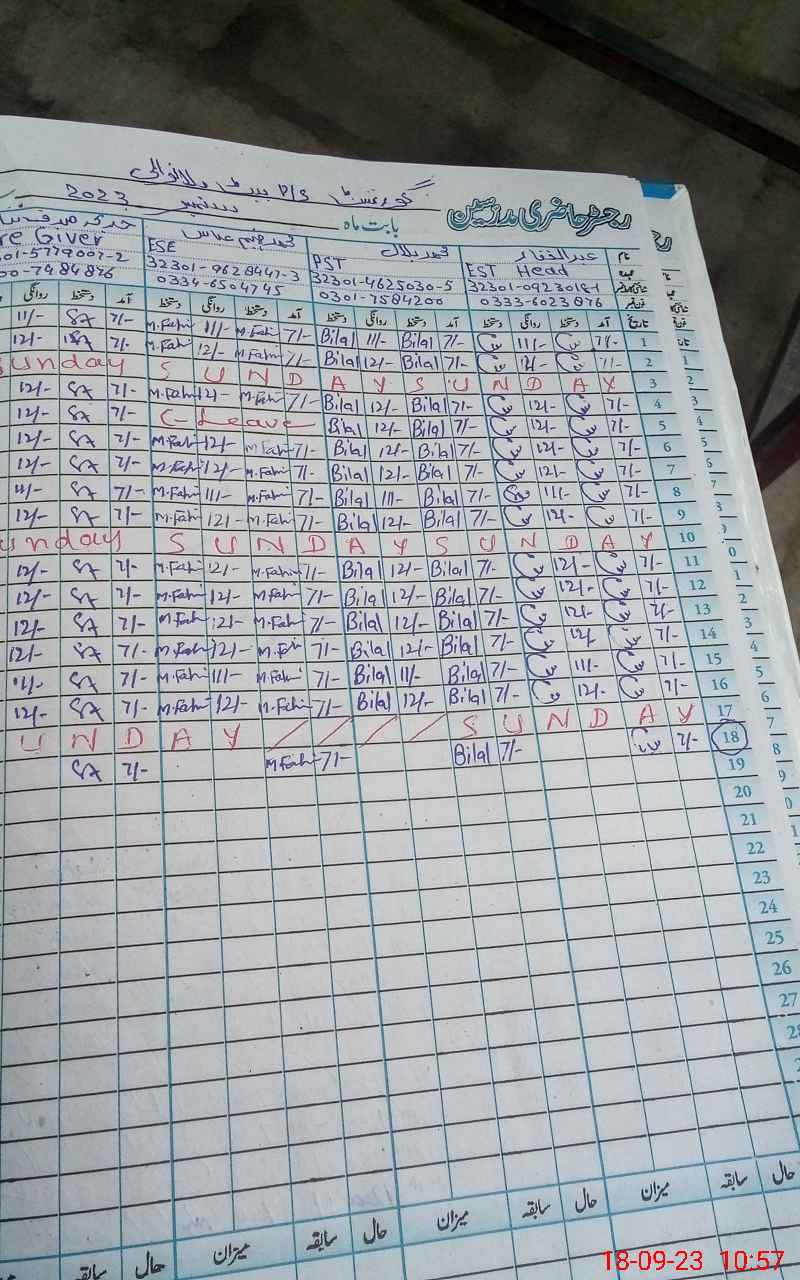 گورنمنٹ P/S بیٹ دلانوالی
رجسٹر حاضری مدرسین بابت ماہ ستمبر 2023
نام عبدالغفار محمد بلال
عہدہ EST Head PST ESE re Giver
32301-0923018-1 32301-4625030-5 32301-9628447-3 01-5779007-2
فون نمبر 0333-6023876 0301-7584200 0334-6504745 00-7484876
تاریخ آمد دستخط روانگی دستخط آمد دستخط روانگی دستخط آمد دستخط روانگی دستخط آمد دستخط روانگی
1 7/- 11/- 7/- Bilal 11/- Bilal 7/- M.Fahi 11/- M.Fahi 7/- 11/-
2 7/- 12/- 7/- Bilal 12/- Bilal 7/- M.Fahi 12/- M.Fahi 7/- 12/-
unday S U N D A Y S U N D A Y 3
4 7/- 12/- 7/- Bilal 12/- Bilal 7/- M.Fahi 12/- M.Fahi 7/- 12/-
5 7/- 12/- 7/- Bilal 12/- Bilal C-Leave 7/- 12/-
6 7/- 12/- 7/- Bilal 12/- Bilal 7/- M.Fahi 12/- M.Fahi 7/- 12/-
7 7/- 12/- 7/- Bilal 12/- Bilal 7/- M.Fahi 12/- M.Fahi 7/- 12/-
8 7/- 11/- 7/- Bilal 11/- Bilal 7/- M.Fahi 11/- M.Fahi 7/- 11/-
9 7/- 12/- 7/- Bilal 12/- Bilal 7/- M.Fahi 12/- M.Fahi 7/- 12/-
unday S U N D A Y S U N D A Y 10
11 7/- 12/- 7/- Bilal 12/- Bilal 7/- M.Fahi 12/- M.Fahi 7/- 12/-
12 7/- 12/- 7/- Bilal 12/- Bilal 7/- M.Fahi 12/- M.Fahi 7/- 12/-
13 7/- 12/- 7/- Bilal 12/- Bilal 7/- M.Fahi 12/- M.Fahi 7/- 12/-
14 7/- 12/- 7/- Bilal 12/- Bilal 7/- M.Fahi 12/- M.Fahi 7/- 12/-
15 7/- 11/- 7/- Bilal 11/- Bilal 7/- M.Fahi 11/- M.Fahi 7/- 11/-
16 7/- 12/- 7/- Bilal 12/- Bilal 7/- M.Fahi 12/- M.Fahi 7/- 12/-
U N D A Y / / / / S U N D A Y 17
18 7/- 7/- Bilal 7/- M.Fahi 7/-
19
20
21
22
23
24
25
26
27
حال سابقہ میزان حال سابقہ میزان حال سابقہ میزان حال سابقہ
18-09-23 10:57